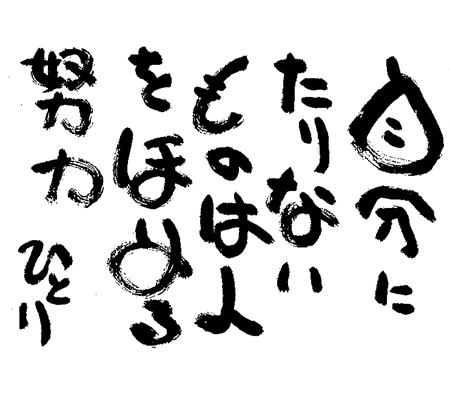 自分に
たりない
ものは人
をほめる
努力 ひとり